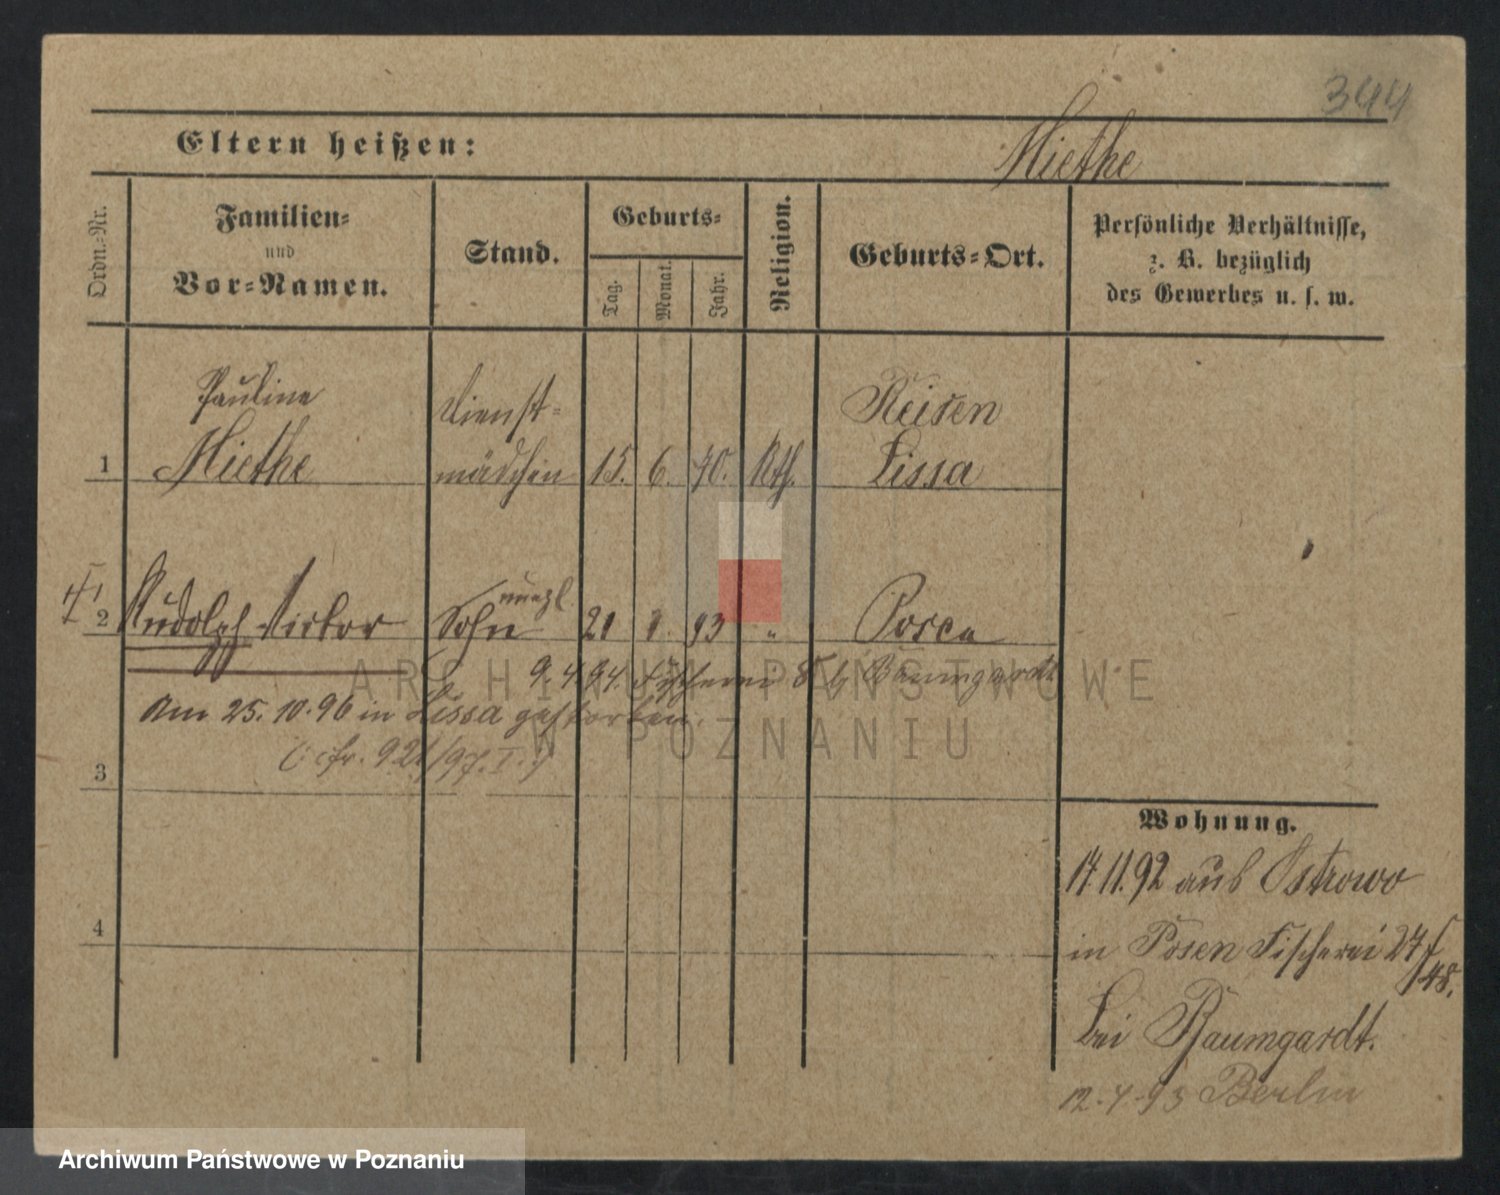 344
Eltern heißen:
Miethe
Ordn.-Nr.
Familien-
und
Vor-Namen.
Stand.
Geburts-
Tag.
Monat.
Jahr.
Religion.
Geburts-Ort.
Persönliche Verhältnisse,
z. B. bezüglich
des Gewerbes u. s. w.
Pauline Dienst- Reisen
1 Miethe mädchen 15. 6. 70. Kth. Lissa
unehl.
2 Rudolph Victor Sohn 21 93 " Posen
9.4.94. Fischerei bei Baumgardt
Am 25.10.96 in Lissa gestorben.
(cfr. 921/97. I.)
3
4
Wohnung.
17.11.92 aus Ostrowo
in Posen Fischerei 27
/48.
bei Baumgardt.
12.4.93 Berlin
ARCHIWUM PAŃSTWOWE
W POZNANIU
Archiwum Państwowe w Poznaniu